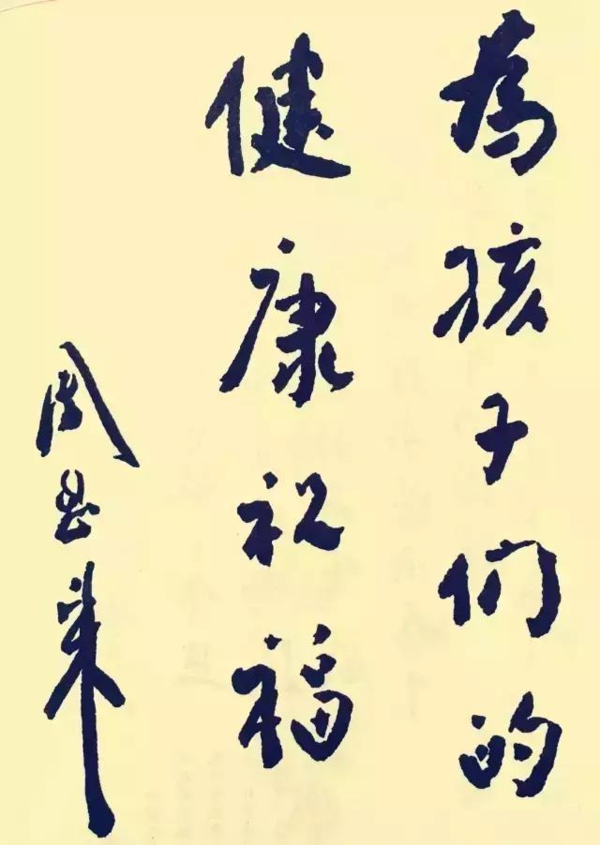 为孩子们的
健康祝福
周恩来